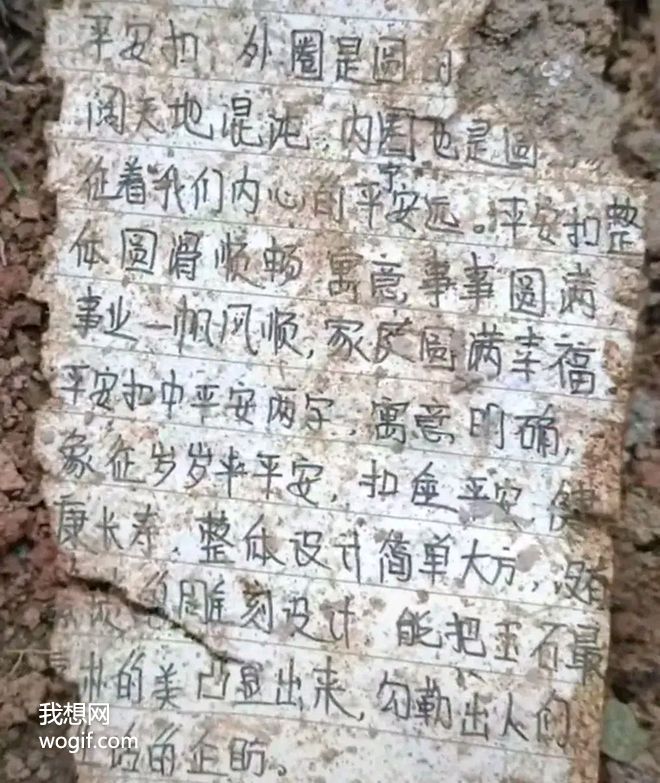 平安扣，外圈是圆的
阔天地混沌，内圈也是圆
征着我们内心的平安宁远。平安扣整
体圆滑顺畅 寓意事事圆满
事业一帆风顺，家庭圆满幸福
平安扣中平安两字，寓意明确，
象征岁岁平安，扣 平安，健
康长寿，整体设计简单大方，
雕刻设计 能把玉石最
的美凸显出来，勾勒出人们
的企盼。
我想网
wogif.com